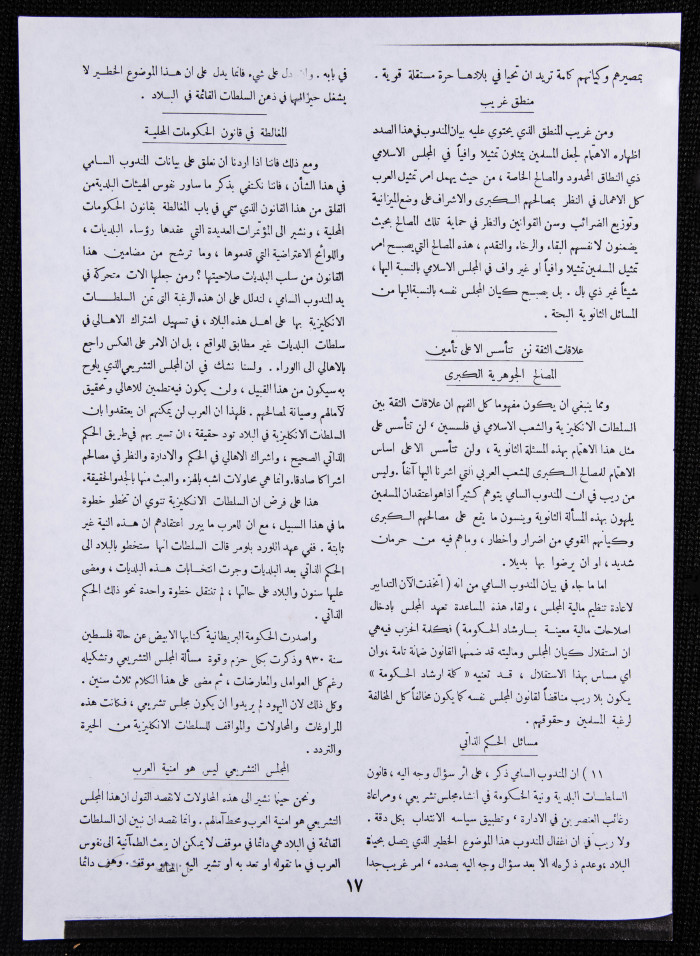 بمصيرهم وكيانهم كامة تريد ان تحيا في بلادها حرة مستقلة قوية .
منطق غريب
ومن غريب المنطق الذي يحتوي عليه بيان المندوب في هذا الصدد
اظهاره الاهتمام لجعل المسلمين يمثلون تمثيلا وافياً في المجلس الاسلامي
ذي النطاق المحدود والمصالح الخاصة ، من حيث يهمل امر تمثيل العرب
كل الاهمال في النظر بمصالحهم الكبرى والاشراف على وضع الميزانية
وتوزيع الضرائب وسن القوانين والنظر في حماية تلك المصالح بحيث
يضمنون لانفسهم البقاء والرخاء والتقدم ، هذه المصالح التي يصبح امر
تمثيل المسلمين تمثيلا وافياً أو غير واف في المجلس الاسلامي بالنسبة اليها ،
شيئاً غير ذي بال . بل يصبح كيان المجلس نفسه بالنسبة اليها من
المسائل الثانوية البحتة .
علاقات الثقة لن تتأسس الاعلى تأمين
المصالح الجوهرية الكبرى
ومما ينبغي ان يكون مفهوما كل الفهم ان علاقات الثقة بين
السلطات الانكليزية والشعب الاسلامي في فلسطين ، لن تتأسس على
مثل هذا الاهتمام بهذه المسئلة الثانوية ، ولن تتأسس الاعلى اساس
الاهتمام للمصالح الكبرى للشعب العربي التي اشرنا اليها آنفاً . وليس
من ريب في ان المندوب السامي يتوهم كثيراً اذا هو اعتقد ان المسلمين
يلهون بهذه المسألة الثانوية وينسون ما يقع على مصالحهم الكبرى
وكيانهم القومي من اضرار واخطار ، وما هم فيه من حرمان
شديد ، او ان يرضوا بها بديلا .
اما ما جاء في بيان المندوب السامي من انه ( اتخذت الآن التدابير
لاعادة تنظيم مالية المجلس ، ولقاء هذه المساعدة تعهد المجلس بادخال
اصلاحات مالية معينة بارشاد الحكومة ) فكلمة الحزب فيه هي
ان استقلال كيان المجلس وماليته قد ضمنها القانون ضمانة تامة ، وان
اي مساس بهذا الاستقلال ، قد تعنيه « كلة ارشاد الحكومة »
يكون بلا ريب مناقضاً لقانون المجلس نفسه كما يكون مخالفاً كل المخالفة
لرغبة المسلمين وحقوقهم .
مسائل الحكم الذاتي
١١ ) ان المندوب السامي ذكر ، على اثر سؤال وجه اليه ، قانون
السلطات البلدية ونية الحكومة في انشاء مجلس تشريعي ، ومراعاة
رغائب العنصرين في الادارة ، وتطبيق سياسه الانتداب بكل دقة .
ولا ريب في ان اغفال المندوب هذا الموضوع الخطير الذي يتصل بحياة
البلاد ، وعدم ذكره له الا بعد سؤال وجه اليه بصدده ، امر غريب جدا
في بابه . وان دل على شيء فانما يدل على ان هذا الموضوع الخطير لا
يشغل حيزا في ذهن السلطات القائمة في البلاد .
المغالطة في قانون الحكومات المحلية
ومع ذلك فاننا اذا اردنا ان نعلق على بيانات المندوب السامي
في هذا الشأن ، فاننا نكتفي بذكر ما ساور نفوس الهيئات البلدية من
القلق من هذا القانون الذي سمي في باب المغالطة بقانون الحكومات
المحلية ، ونشير الى المؤتمرات العديدة التي عقدها رؤساء البلديات ،
واللوائح الاعتراضية التي قدموها ، وما ترشح من مضامين هذا
القانون من سلب البلديات صلاحيتها ؟ ومن جعلها الات متحركة في
يد المندوب السامي ، لندلل على ان هذه الرغبة التي تمن السلطات
الانكليزية بها على اهل هذه البلاد ، في تسهيل اشتراك الاهالي في
سلطات البلديات غير مطابق للواقع ، بل ان الامر على العكس راجع
بالاهالي الى الوراء . ولسنا نشك في ان المجلس التشريعي الذي يلوح
به سيكون من هذا القبيل ، ولن يكون فيه تطمين للاهالي وتحقيق
لآمالهم وصيانة لمصالحهم . فلهذا ان العرب لن يمكنهم ان يعتقدوا بان
السلطات الانكليزية في البلاد تود حقيقة ، ان تسير بهم في طريق الحكم
الذاتي الصحيح ، واشراك الاهالي في الحكم والادارة والنظر في مصالحهم
اشراكا صادقا. وانما هي محاولات اشبه بالهزء والعبث منها بالجد والحقيقة.
هذا على فرض ان السلطات الانكليزية تنوي ان تخطو خطوة
ما في هذا السبيل ، مع ان للعرب ما يبرر اعتقادهم ان هذه النية غير
ثابتة . ففي عهد اللورد بلومر قالت السلطات انها ستخطو بالبلاد الى
الحكم الذاتي بعد البلديات وجرت انتخابات هذه البلديات ، ومضى
عليها سنون والبلاد على حالتها ، لم تنتقل خطوة واحدة نحو ذلك الحكم
الذاتي .
واصدرت الحكومة البريطانية كتابها الابيض عن حالة فلسطين
سنة ٩٣٠ وذكرت بكل حزم وقوة مسألة المجلس التشريعي وتشكيله
رغم كل العوامل والمعارضات ، ثم مضى على هذا الكلام ثلاث سنين .
وكل ذلك لان اليهود لم يريدوا ان يكون مجلس تشريعي ، فكانت هذه
المراوغات والمحاولات والمواقف للسلطات الانكليزية من الحيرة
والتردد .
المجلس التشريعي ليس هو امنية العرب
ونحن حينما نشير الى هذه المحاولات لا نقصد القول ان هذا المجلس
التشريعي هو امنية العرب ومحط آمالهم . وانما نقصد ان نبين ان السلطات
القائمة في البلاد هي دائما في موقف لا يمكن ان يبعث الطمأنينة الى نفوس
العرب في ما تقوله او تعد به او تشير اليه . هو موقف دائما
١٧